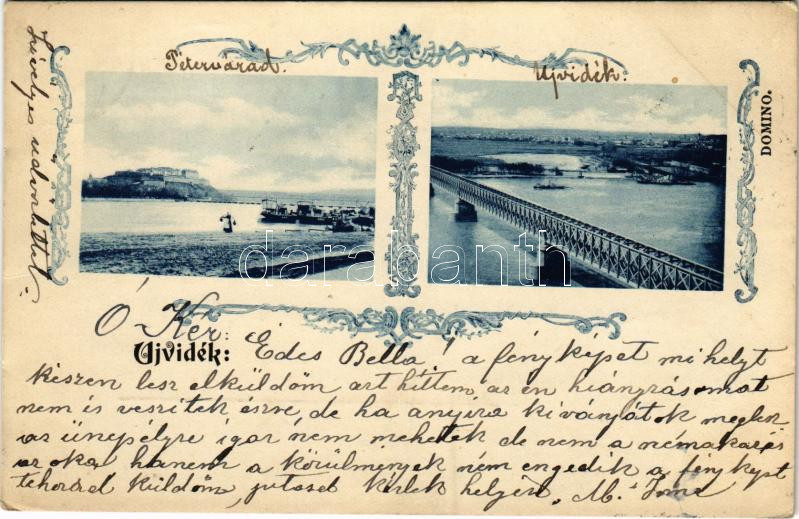 Szívélyes üdvözlettel
Pétervárad.
Ujvidék.
DOMINO.
darabanth
Ó Kér
Ujvidék: Édes Bella! a fényképet mihelyt
készen lesz elküldöm azt hittem, az én hiányzásomat
nem is veszitek észre, de ha annyira kívánjátok meglesz
az ünepélyre igaz nem mehetek de nem a
az oka hanem a körülmények nem engedik a fényképet
küldöm, kérlek helyén, M.